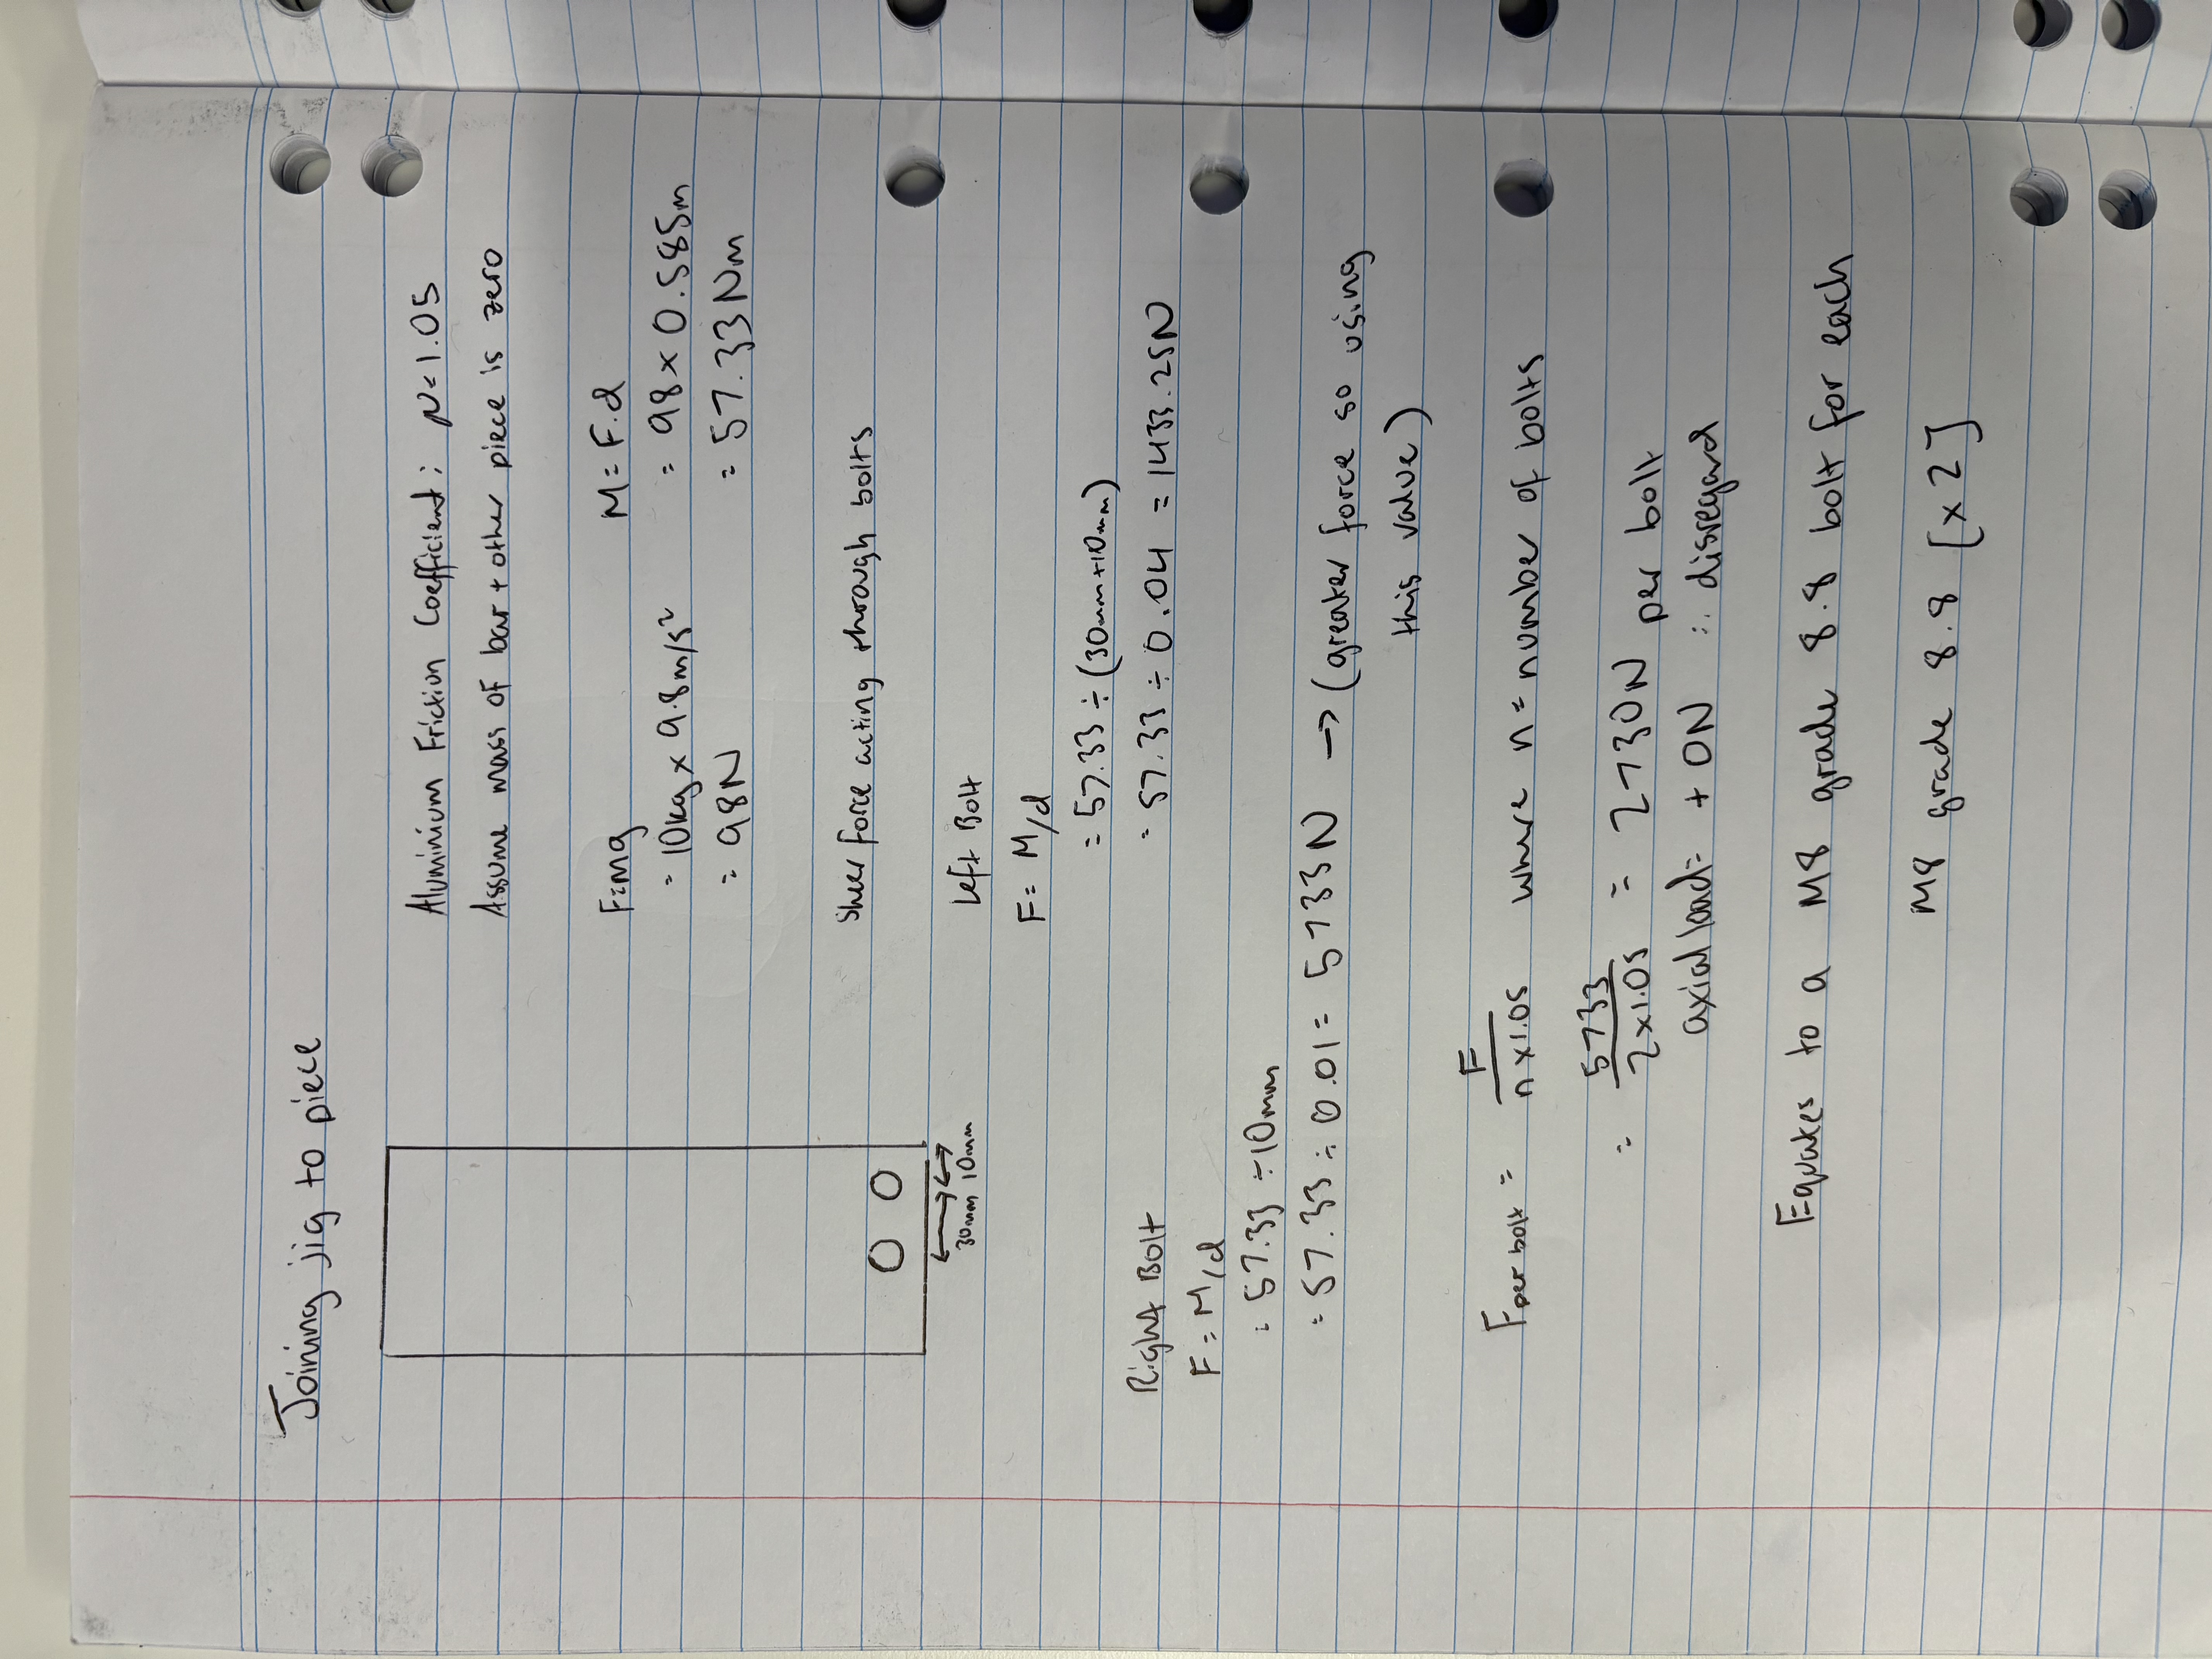 Joining jig to piece
Aluminium Friction Coefficient: μ=1.05
Assume mass of bar + other piece is zero
F=mg
= 10kg x 9.8m/s²
= 98N
M = F.d
= 98 x 0.585m
= 57.33Nm
30mm 10mm
Sheer force acting through bolts
Left Bolt
F = M/d
= 57.33 ÷ (30mm+10mm)
= 57.33 ÷ 0.04 = 1433.25N
Right Bolt
F = M/d
= 57.33 ÷ 10mm
= 57.33 ÷ 0.01 = 5733N → (greater force so using
this value)
F per bolt = F / n x 1.05 where n = number of bolts
= 5733 / 2 x 1.05 = 2730N per bolt
axial load = + 0N ∴ disregard
Equates to a M8 grade 8.8 bolt for each
M8 grade 8.8 [x2]